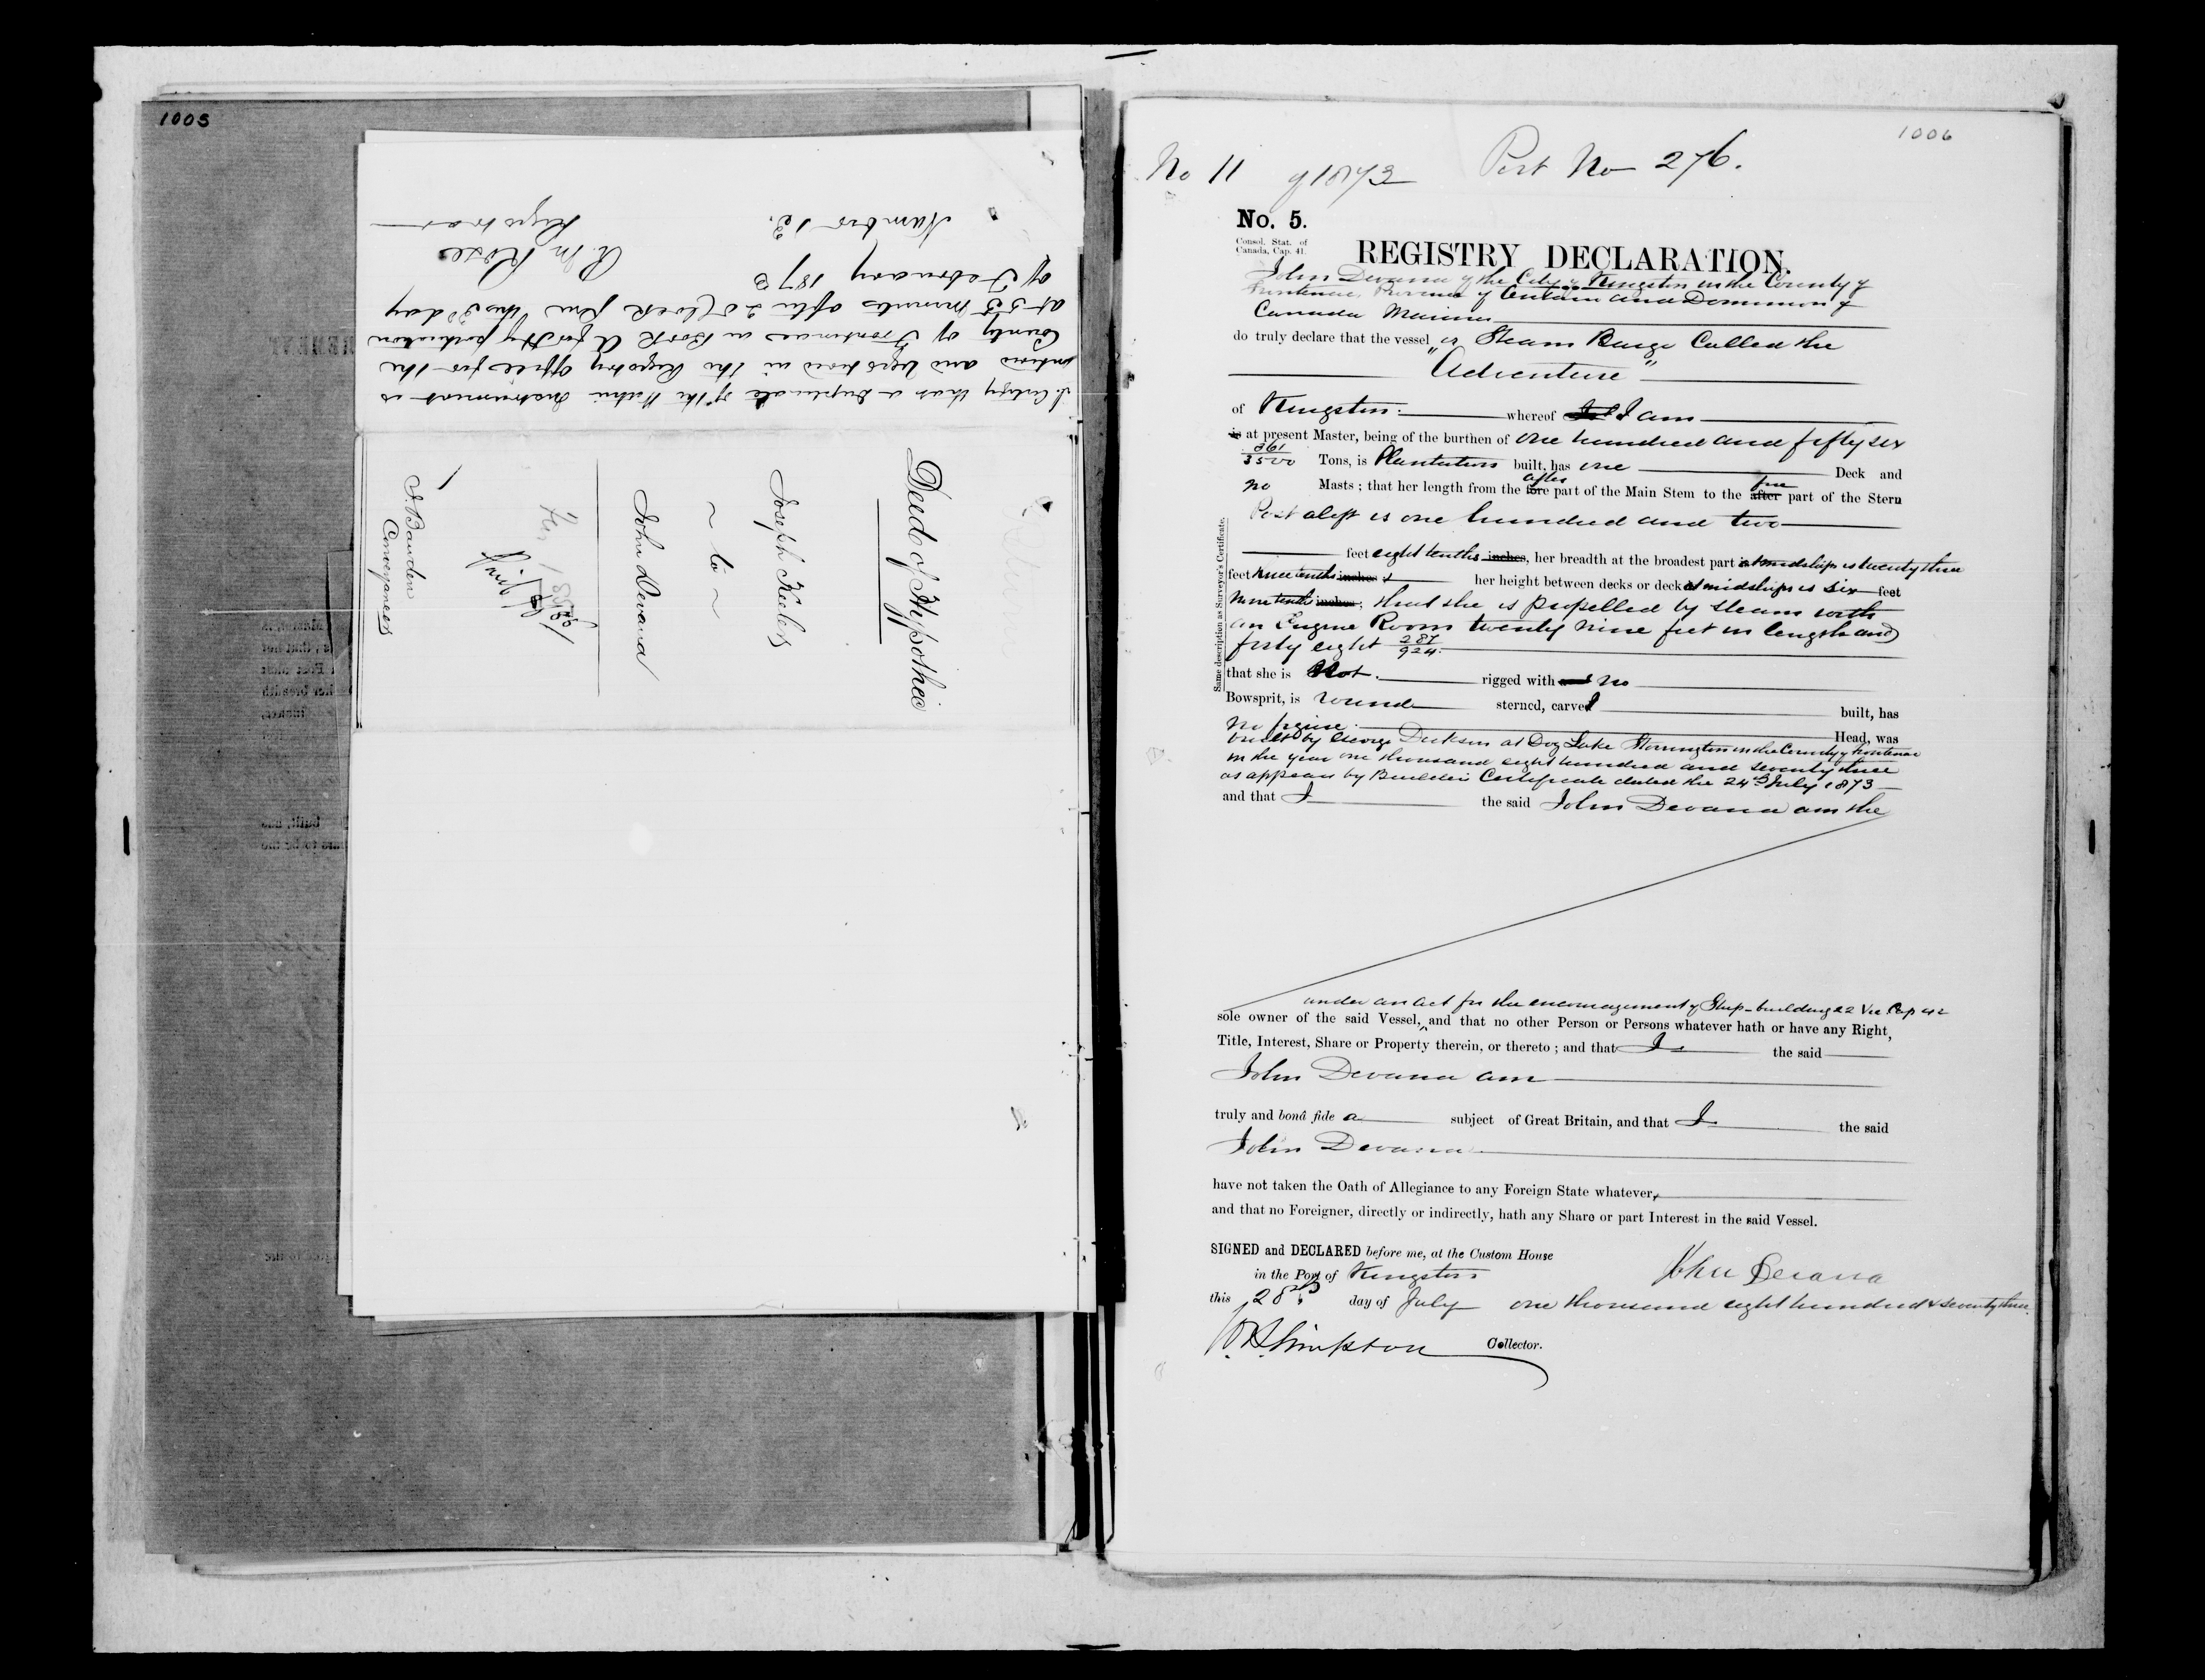 1005
I Certify that a Duplicate of the Within Instrument is
entered and Registered in the Registry Office for the
County of Frontenac in Book A for Hypothecation
at 55 minutes after 2 oClock P.M. this 3d day
of February 1873
R. M. Rose
Registrar
Number 12.
Deed of Hypothec
Joseph Keeler
to
John Devana
S. Bawden
Conveyancer
1006
No 11 of 1873 Port No 276.
No. 5.
Consol. Stat. of
Canada, Cap. 41.
REGISTRY DECLARATION.
John Devana of the City of Kingston in the County of
Frontenac, Province of Ontario and Dominion of
Canada Mariner
do truly declare that the vessel or Steam Barge Called the
"Adventure"
of Kingston. whereof I am
is at present Master, being of the burthen of one hundred and fifty six
361/3500 Tons, is Plantation built, has one Deck and
no Masts ; that her length from the fore after part of the Main Stem to the after fore part of the Stern
Post aloft is one hundred and two
feet eight tenths inches, her breadth at the broadest part is at midships is twenty three
feet nine tenths inches her height between decks or deck at midships is six feet
nine tenths inches ; that she is propelled by steam with
an Engine Room twenty nine feet in length and
forty eight 287/924.
Same description as Surveyor's Certificate.
that she is Not. rigged with no
Bowsprit, is round sterned, carvel built, has
no figure. Head, was
built by George Dickson at Dog Lake Storrington in the County of Frontenac
in the year one thousand eight hundred and seventy three
as appears by Builders Certificate dated the 24th July 1873
and that I the said John Devana am the
under an act for the encouragement of Ship-building 22 Vic Cap 42
sole owner of the said Vessel, and that no other Person or Persons whatever hath or have any Right,
Title, Interest, Share or Property therein, or thereto ; and that I the said
John Devana am
truly and bonâ fide a subject of Great Britain, and that I the said
John Devana
have not taken the Oath of Allegiance to any Foreign State whatever,
and that no Foreigner, directly or indirectly, hath any Share or part Interest in the said Vessel.
SIGNED and DECLARED before me, at the Custom House
in the Port of Kingston
John Devana
this 28th day of July one thousand eight hundred & seventy three.
Collector.